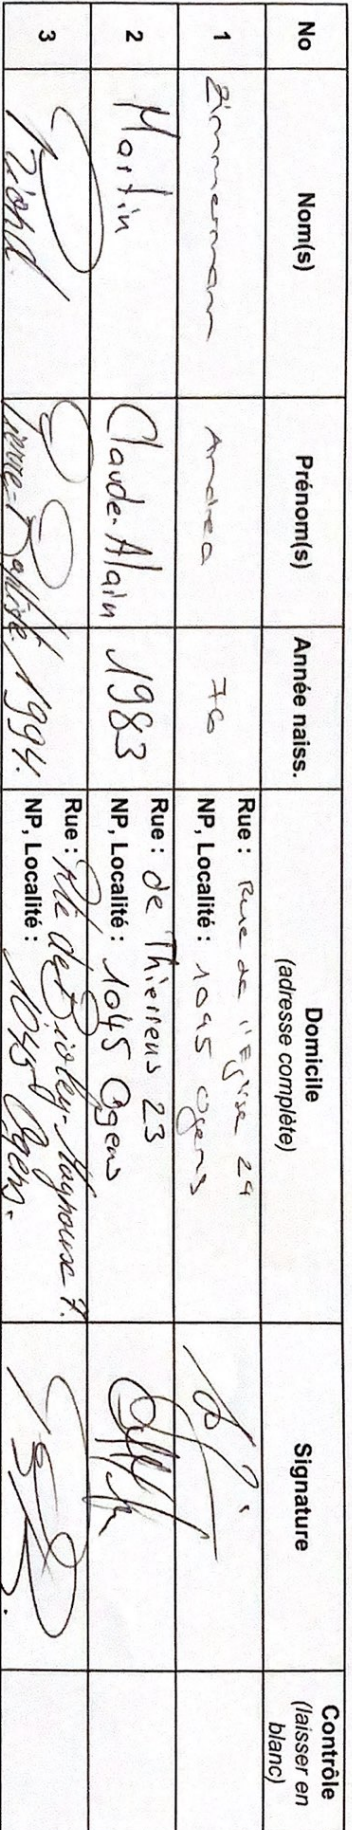 No Nom(s) Prénom(s) Année naiss. Domicile Signature Contrôle
(adresse complète) (laisser en
blanc)
1 Zimmermann Andrea 76 Rue : Rue de l'Eglise 24
NP, Localité : 1045 Ogens
2 Martin Claude-Alain 1983 Rue : de Thierrens 23
NP, Localité : 1045 Ogens
3 Pierre-Baptiste 1994. Rue : Rte de Bioley-Magnoux 7.
NP, Localité : 1045 Ogens.